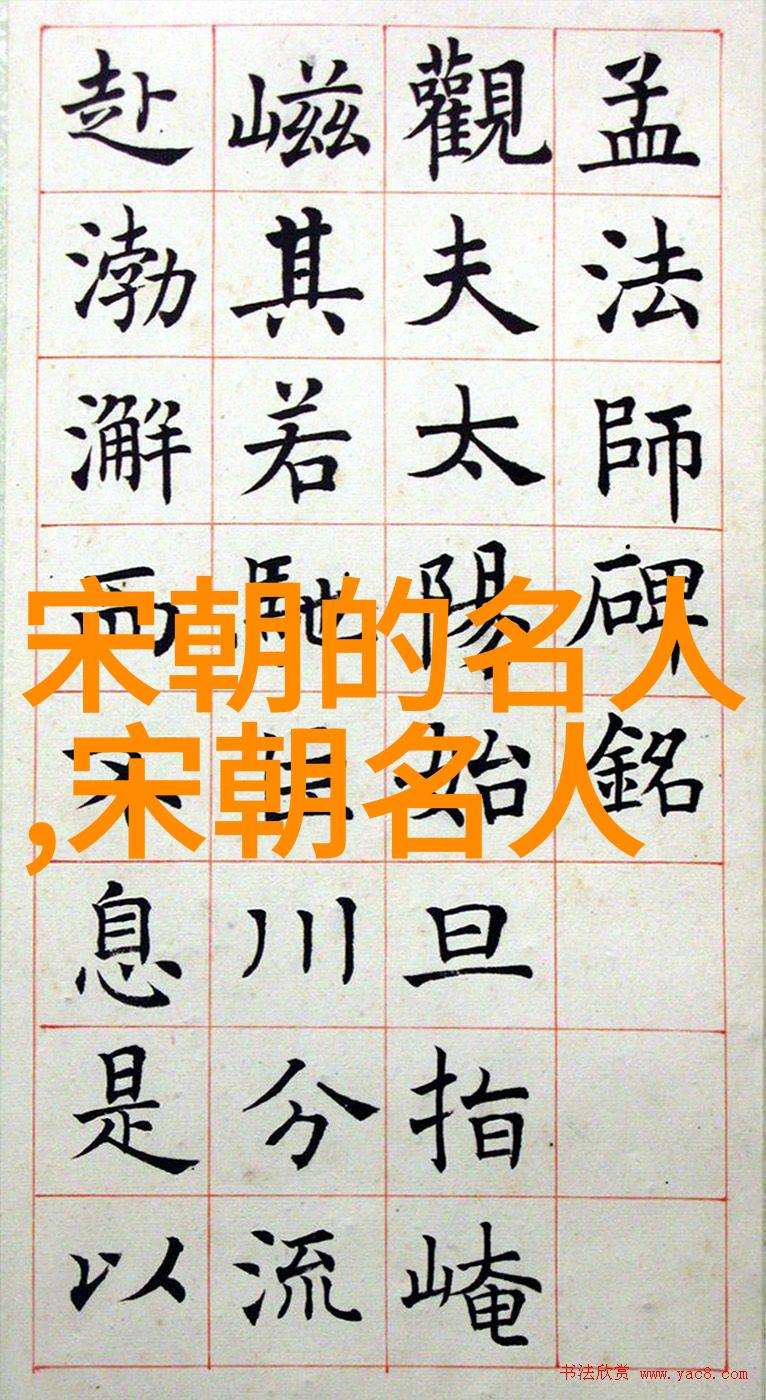 孟法師碑銘
觀夫太陽始旦指崦
嵫其若馳巨川分流
赴渤澥而不息是以
宋朝的名人
,宋朝名人
书法欣赏 www.yac8.com